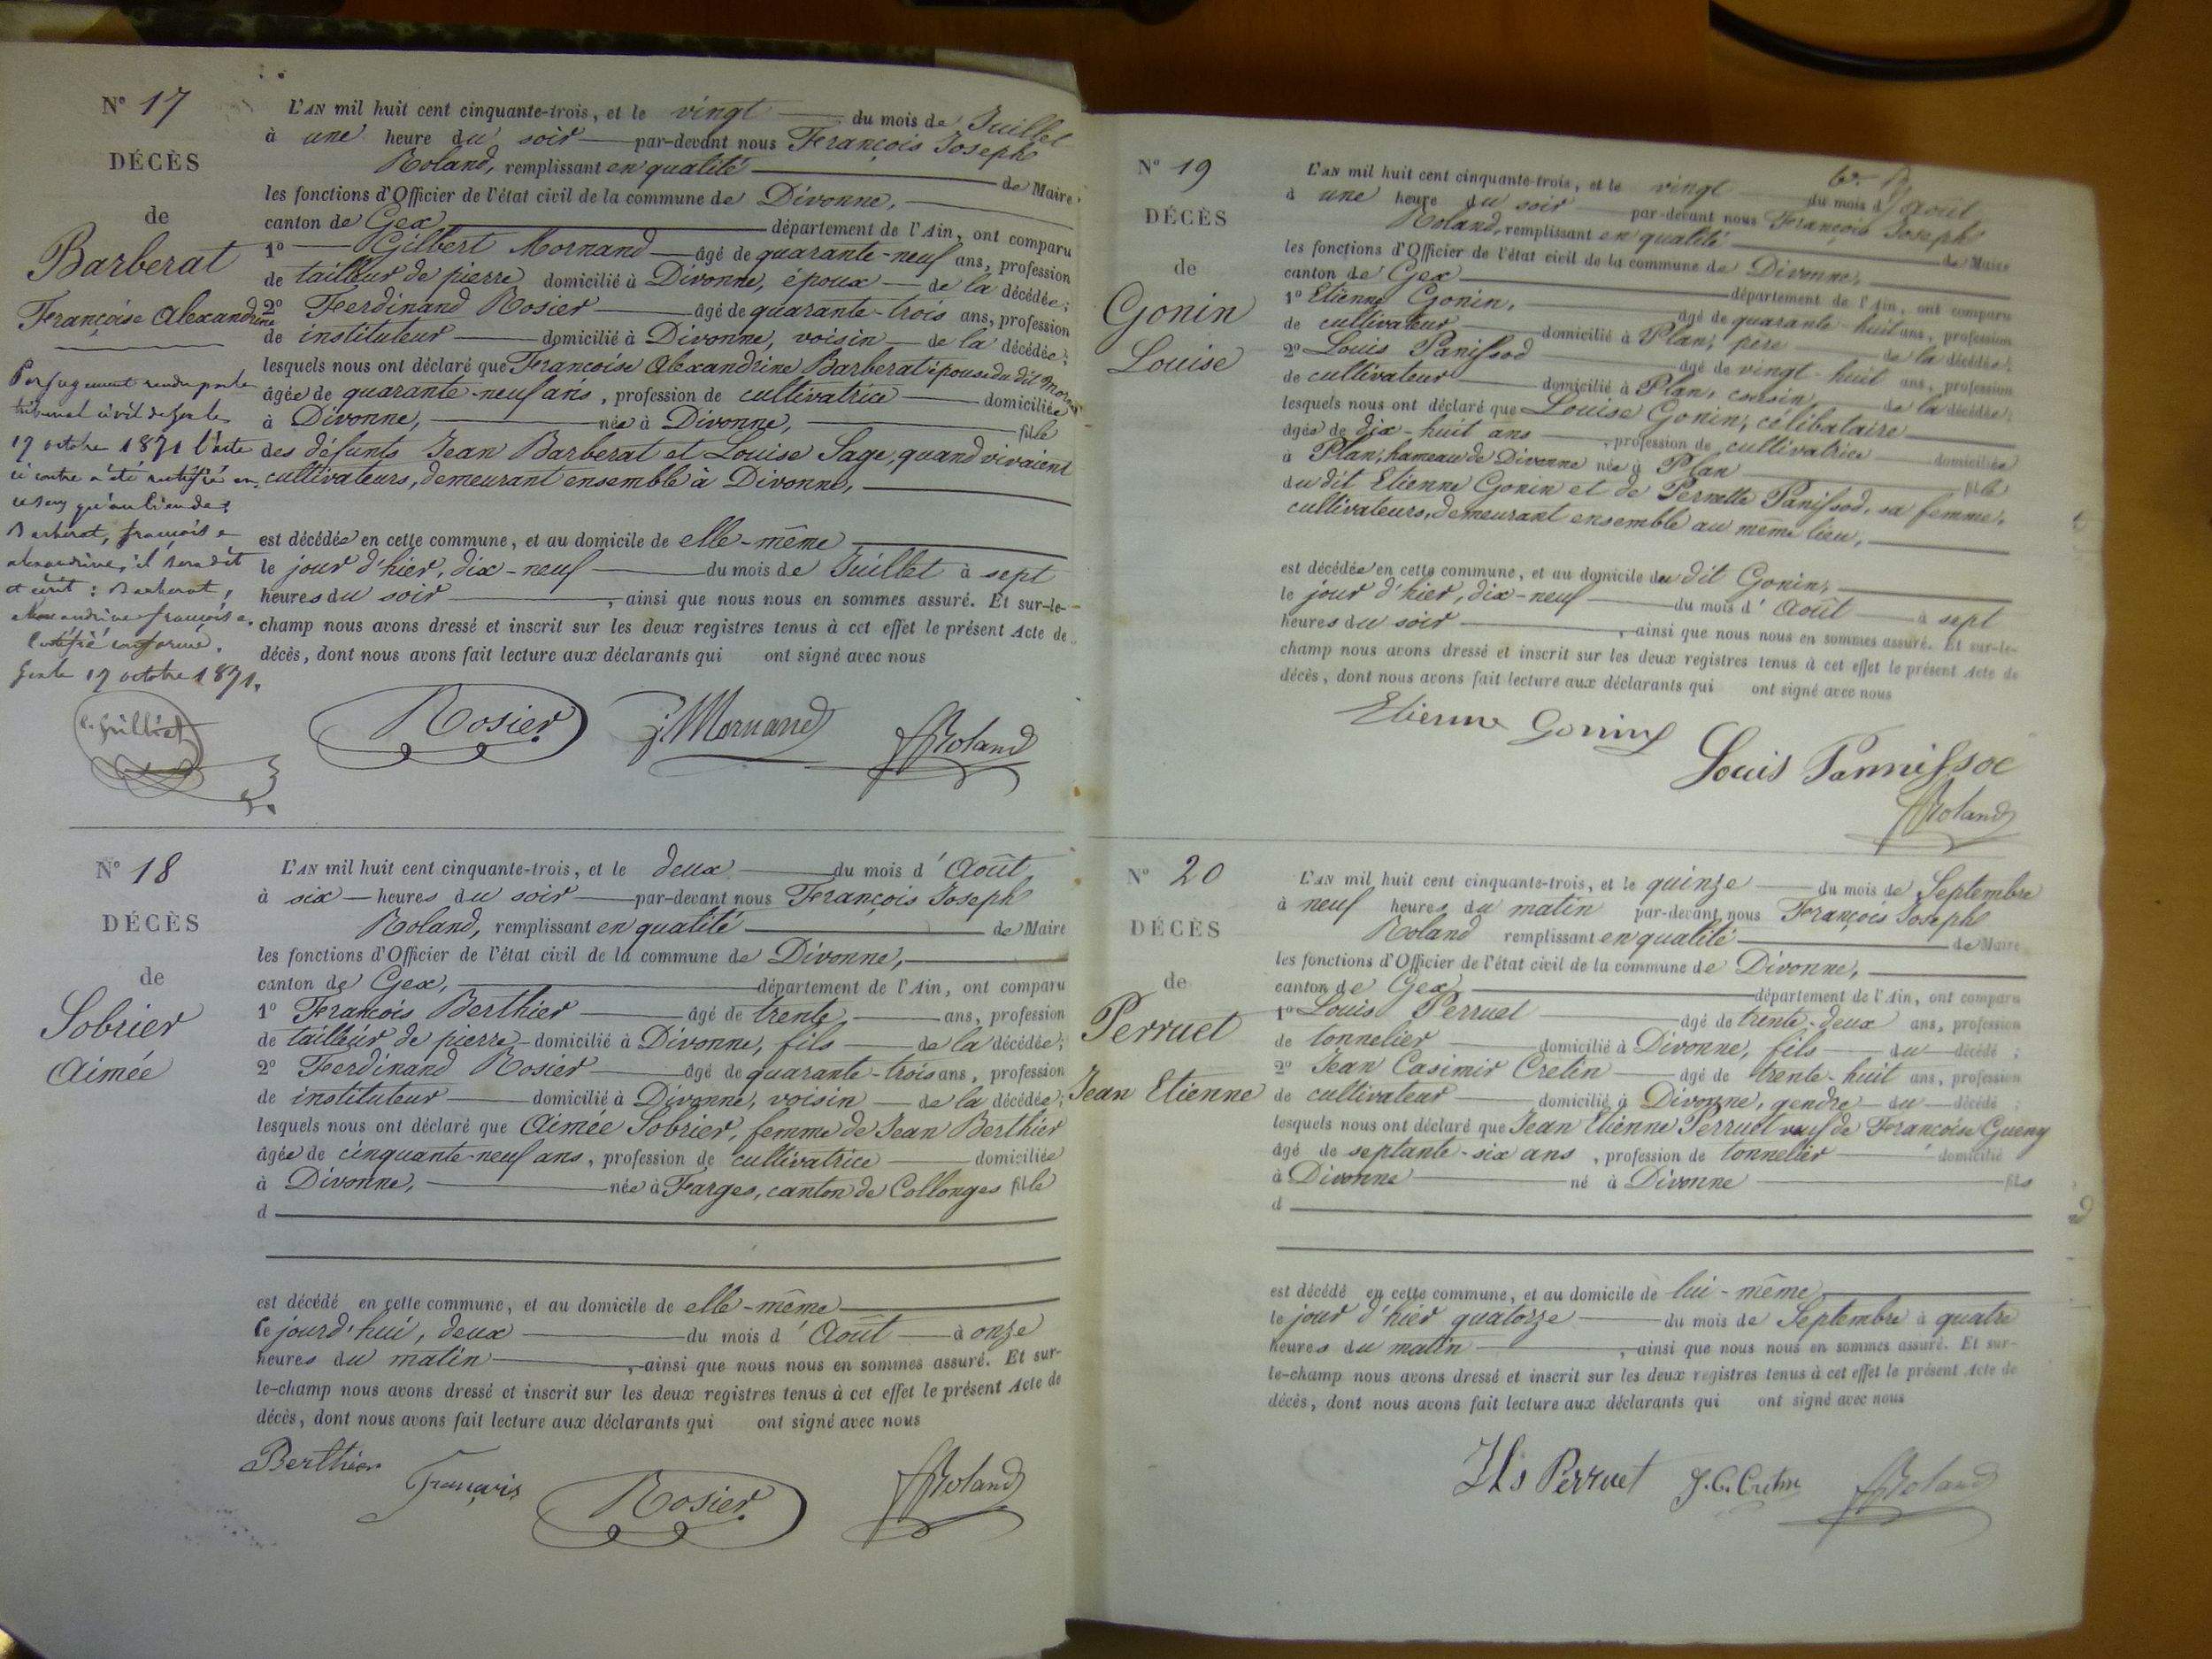 N° 17
DÉCÈS
de
Barberat
Françoise Alexandrine
Par jugement rendu par le
tribunal civil de Gex le
17 octobre 1871 l'acte
ci contre a été rectifié en
ce sens qu'au lieu de :
Barberat, françoise
alexandrine, il sera dit
et écrit : Barberat,
Alexandrine françoise.
Certifié conforme.
Gex le 17 octobre 1871.
L'AN mil huit cent cinquante-trois, et le vingt du mois de Juillet
à une heure du soir par-devant nous François Joseph
Roland, remplissant en qualité de Maire
les fonctions d'Officier de l'état civil de la commune de Divonne,
canton de Gex département de l'Ain, ont comparu
1° Gilbert Mornand âgé de quarante-neuf ans, profession
de tailleur de pierre domicilié à Divonne, époux de la décédée;
2° Ferdinand Rosier âgé de quarante-trois ans, profession
de instituteur domicilié à Divonne, voisin de la décédée;
lesquels nous ont déclaré que Françoise Alexandrine Barberat épouse du dit Mornand
âgée de quarante-neuf ans, profession de cultivatrice domiciliée
à Divonne, née à Divonne, fille
des défunts Jean Barberat et Louise Sage, quand vivaient
cultivateurs, demeurant ensemble à Divonne,
est décédée en cette commune, et au domicile de elle-même
le jour d'hier, dix-neuf du mois de Juillet à sept
heures du soir, ainsi que nous nous en sommes assuré. Et sur-le-
champ nous avons dressé et inscrit sur les deux registres tenus à cet effet le présent Acte de
décès, dont nous avons fait lecture aux déclarants qui ont signé avec nous
Rosier G. Mornand Roland
N° 18
DÉCÈS
de
Sobrier
Aimée
L'AN mil huit cent cinquante-trois, et le deux du mois d'Août
à six heures du soir par-devant nous François Joseph
Roland, remplissant en qualité de Maire
les fonctions d'Officier de l'état civil de la commune de Divonne,
canton de Gex, département de l'Ain, ont comparu
1° François Berthier âgé de trente ans, profession
de tailleur de pierre domicilié à Divonne, fils de la décédée;
2° Ferdinand Rosier âgé de quarante-trois ans, profession
de instituteur domicilié à Divonne, voisin de la décédée;
lesquels nous ont déclaré que Aimée Sobrier, femme de Jean Berthier
âgée de cinquante-neuf ans, profession de cultivatrice domiciliée
à Divonne, née à Farges, canton de Collonges fille
d
est décédé en cette commune, et au domicile de elle-même
le jourd'hui, deux du mois d'Août à onze
heures du matin, ainsi que nous nous en sommes assuré. Et sur-
le-champ nous avons dressé et inscrit sur les deux registres tenus à cet effet le présent Acte de
décès, dont nous avons fait lecture aux déclarants qui ont signé avec nous
Berthier François Rosier Roland
N° 19
DÉCÈS
de
Gonin
Louise
L'AN mil huit cent cinquante-trois, et le vingt du mois d'Août
à une heure du soir par-devant nous François Joseph
Roland, remplissant en qualité de Maire
les fonctions d'Officier de l'état civil de la commune de Divonne,
canton de Gex département de l'Ain, ont comparu
1° Etienne Gonin, âgé de quarante-huit ans, profession
de cultivateur domicilié à Plan, père de la décédée;
2° Louis Panissod âgé de vingt-huit ans, profession
de cultivateur domicilié à Plan, cousin, de la décédée;
lesquels nous ont déclaré que Louise Gonin, célibataire
âgée de dix-huit ans, profession de cultivatrice domiciliée
à Plan, hameau de Divonne née à Plan fille
du dit Etienne Gonin et de Pernette Panissod, sa femme,
cultivateurs, demeurant ensemble au même lieu,
est décédée en cette commune, et au domicile du dit Gonin,
le jour d'hier, dix-neuf du mois d'Août à sept
heures du soir, ainsi que nous nous en sommes assuré. Et sur-le-
champ nous avons dressé et inscrit sur les deux registres tenus à cet effet le présent Acte de
décès, dont nous avons fait lecture aux déclarants qui ont signé avec nous
Etienne Gonin
Louis Pannissoc
Roland
N° 20
DÉCÈS
de
Perruet
Jean Etienne
L'AN mil huit cent cinquante-trois, et le quinze du mois de Septembre
à neuf heures du matin par-devant nous François Joseph
Roland remplissant en qualité de Maire
les fonctions d'Officier de l'état civil de la commune de Divonne,
canton de Gex département de l'Ain, ont comparu
1° Louis Perruet âgé de trente-deux ans, profession
de tonnelier domicilié à Divonne, fils du décédé;
2° Jean Casimir Cretin âgé de trente-huit ans, profession
de cultivateur domicilié à Divonne, gendre du décédé;
lesquels nous ont déclaré que Jean Etienne Perruet veuf de Françoise Gueny
âgé de septante-six ans, profession de tonnelier domicilié
à Divonne né à Divonne fils
d
est décédé en cette commune, et au domicile de lui-même
le jour d'hier quatorze du mois de Septembre à quatre
heures du matin, ainsi que nous nous en sommes assuré. Et sur-
le-champ nous avons dressé et inscrit sur les deux registres tenus à cet effet le présent Acte de
décès, dont nous avons fait lecture aux déclarants qui ont signé avec nous
Perruet J. C. Cretin Roland